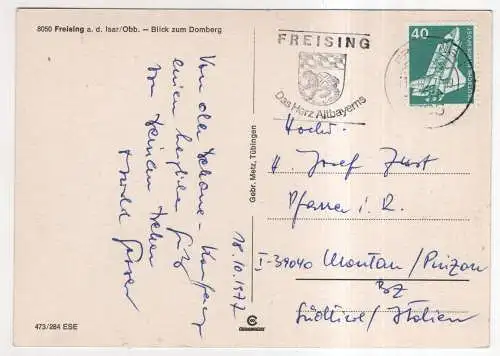 8050 Freising a. d. Isar/Obb. — Blick zum Domberg
Von der Dekane-Konferenz
einen herzlichen Gruß
von
18.10.1977
473/284 ESE
Gebr. Metz, Tübingen
FREISING
Das Herz Altbayerns
40
DEUTSCHE BUNDESPOST
Hochw.
H. Josef Just
Pfarrer i. R.
I-39040 Montan/Pinzon
BZ
Südtirol/Italien